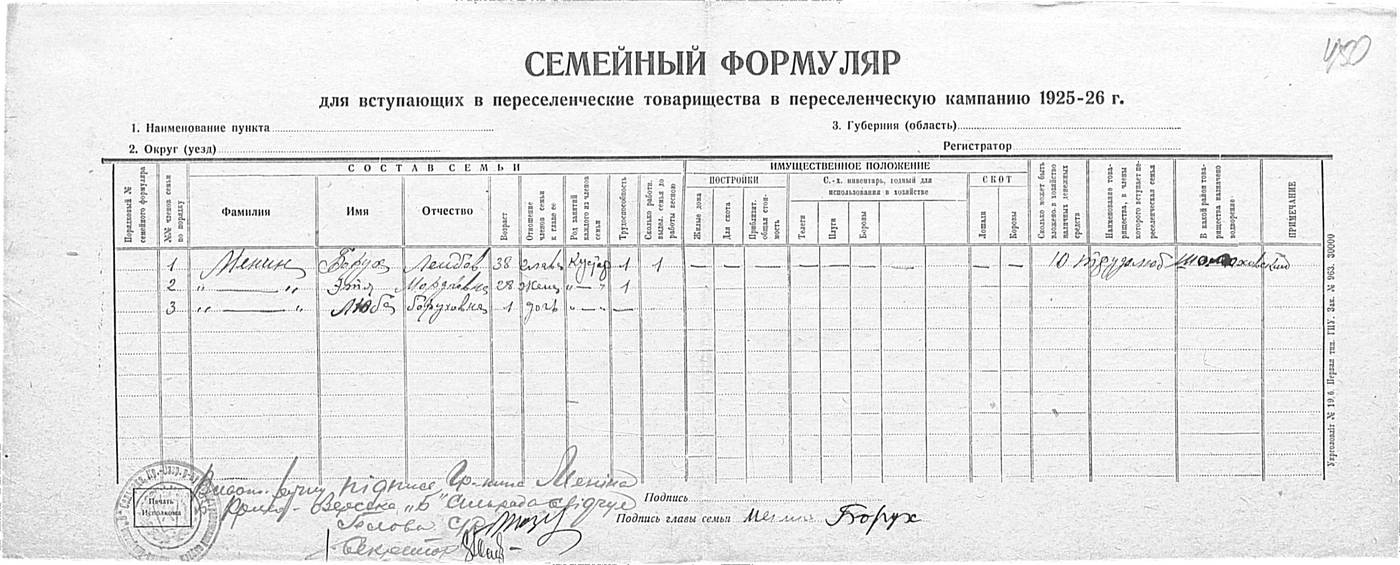 490
СЕМЕЙНЫЙ ФОРМУЛЯР
для вступающих в переселенческие товарищества в переселенческую кампанию 1925-26 г.
1. Наименование пункта
3. Губерния (область)
2. Округ (уезд)
Регистратор
Порядковый № семейного формуляра
СОСТАВ СЕМЬИ
№№ членов семьи по порядку
Фамилия
Имя
Отчество
Возраст
Отношение членов семьи к главе ее
Род занятий каждого из членов семьи
Трудоспособность
Сколько работн. выдел. семья до работы весною
ИМУЩЕСТВЕННОЕ ПОЛОЖЕНИЕ
ПОСТРОЙКИ
Жилые дома
Для скота
Приблизит. общая стоимость
С.-х. инвентарь, годный для использования в хозяйстве
Телеги
Плуги
Бороны
СКОТ
Лошади
Коровы
Сколько может быть вложено в хозяйство наличных денежных средств
Наименование товарищества, в члены которого вступает переселенческая семья
В какой район товарищества назначено водворение
ПРИМЕЧАНИЕ
1 Менин Борух Лейбов 38 глава Кустар 1 1 — — — — — — — — — 10 Трудолюб
2 „ — „ Этя Мордковна 28 жена „ — „ 1
3 „ — „ Люба Боруховна 1 дочь „ — „ —
Укрголовліт № 19.6. Первая тип. ГПУ. Зак. № 963. 30000
Печать Исполкома
підпис Гр-нина Меніна
"Б" Сільрада свідчує
Голова С/Р
Секретар
Подпись
Подпись главы семьи Менин Борух